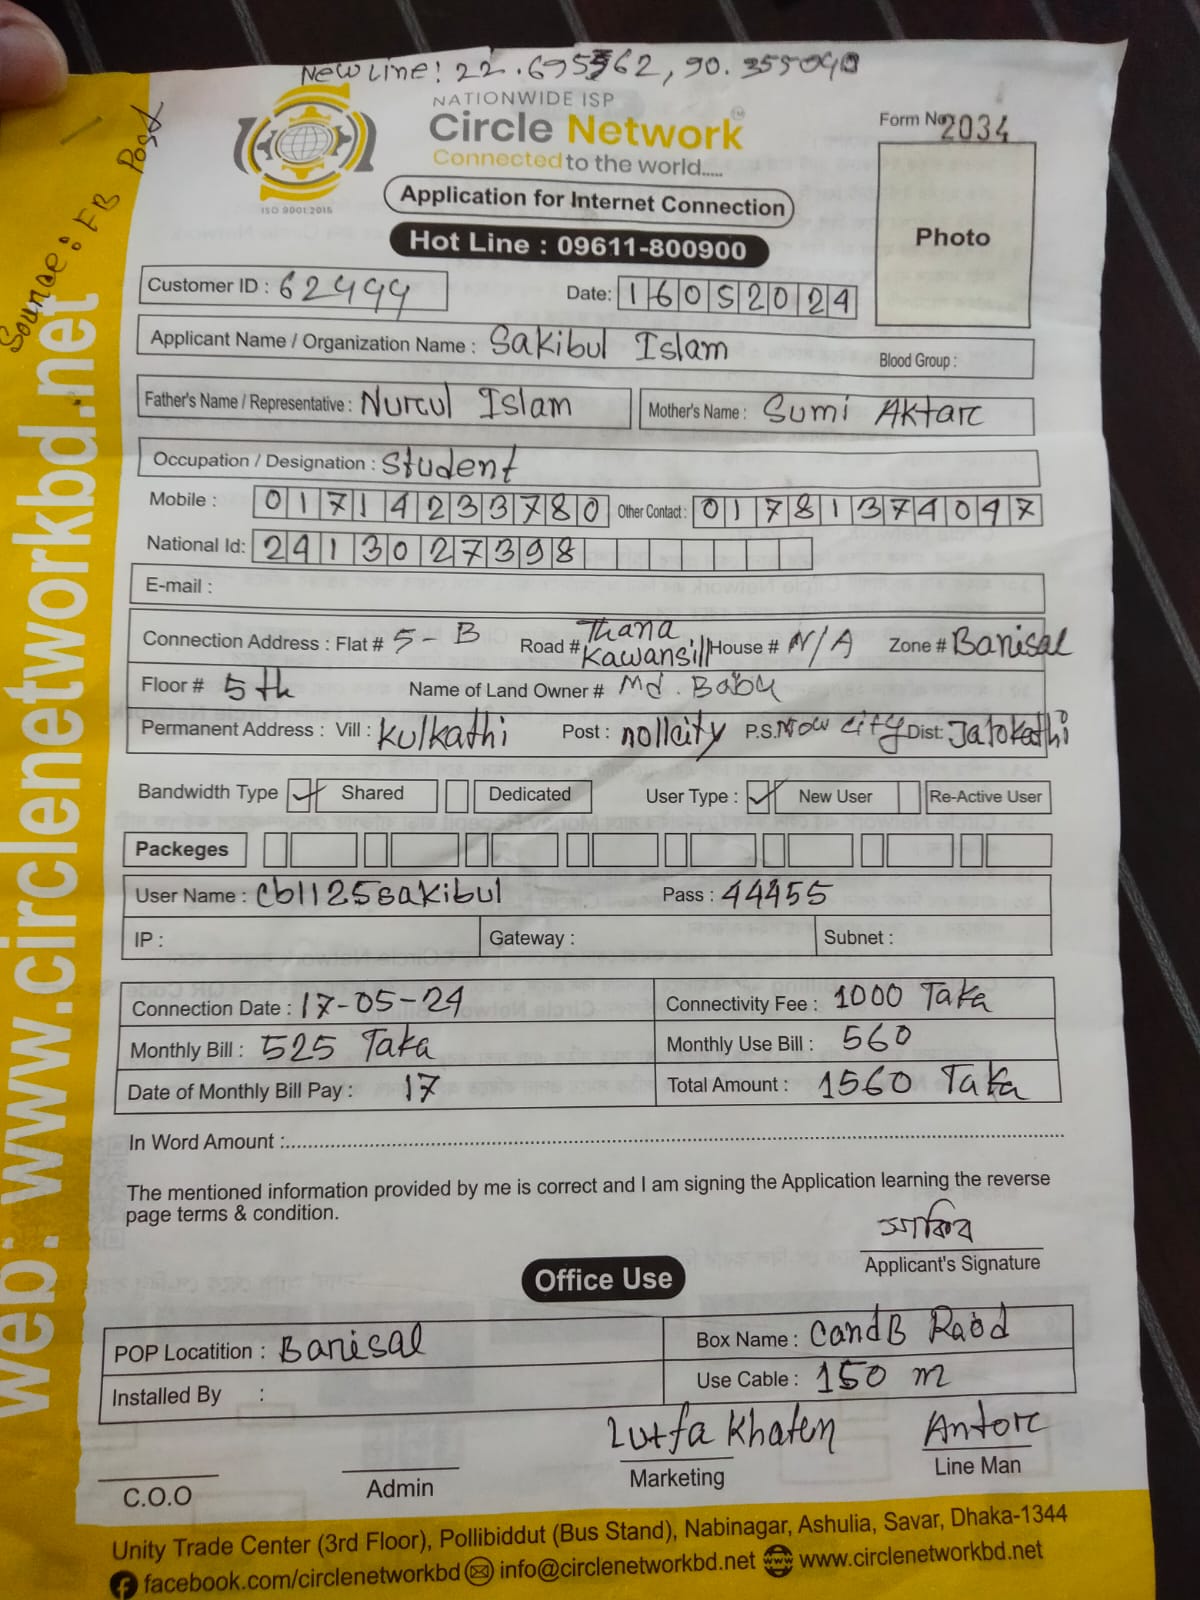 New Line: 22.695562, 90.355040
NATIONWIDE ISP
Circle Network
Connected to the world.....
ISO 9001:2015
Form No 2034
Photo
Application for Internet Connection
Hot Line : 09611-800900
Source: FB Post
web: www.circlenetworkbd.net
Customer ID : 62499
Date: 16052024
Applicant Name / Organization Name : Sakibul Islam Blood Group :
Father's Name / Representative : Nurul Islam Mother's Name : Sumi Aktar
Occupation / Designation : Student
Mobile : 01714233780 Other Contact : 01781374047
National Id: 2413027398
E-mail :
Connection Address : Flat # 5-B Road # Thana Kawansill House # N/A Zone # Barisal
Floor # 5th Name of Land Owner # Md. Babu
Permanent Address : Vill : Kulkathi Post : nollcity P.S. Now city Dist: Jalokathi
Bandwidth Type ✓ Shared Dedicated User Type : ✓ New User Re-Active User
Packeges
User Name : cb1125sakibul Pass : 44455
IP : Gateway : Subnet :
Connection Date : 17-05-24 Connectivity Fee : 1000 Taka
Monthly Bill : 525 Taka Monthly Use Bill : 560
Date of Monthly Bill Pay : 17 Total Amount : 1560 Taka
In Word Amount :
The mentioned information provided by me is correct and I am signing the Application learning the reverse
page terms & condition.
সাকিব
Applicant's Signature
Office Use
POP Locatition : Barisal Box Name : CandB Raod
Installed By : Use Cable : 150 m
Lutfa Khaten Antor
C.O.O Admin Marketing Line Man
Unity Trade Center (3rd Floor), Pollibiddut (Bus Stand), Nabinagar, Ashulia, Savar, Dhaka-1344
facebook.com/circlenetworkbd info@circlenetworkbd.net www.circlenetworkbd.net